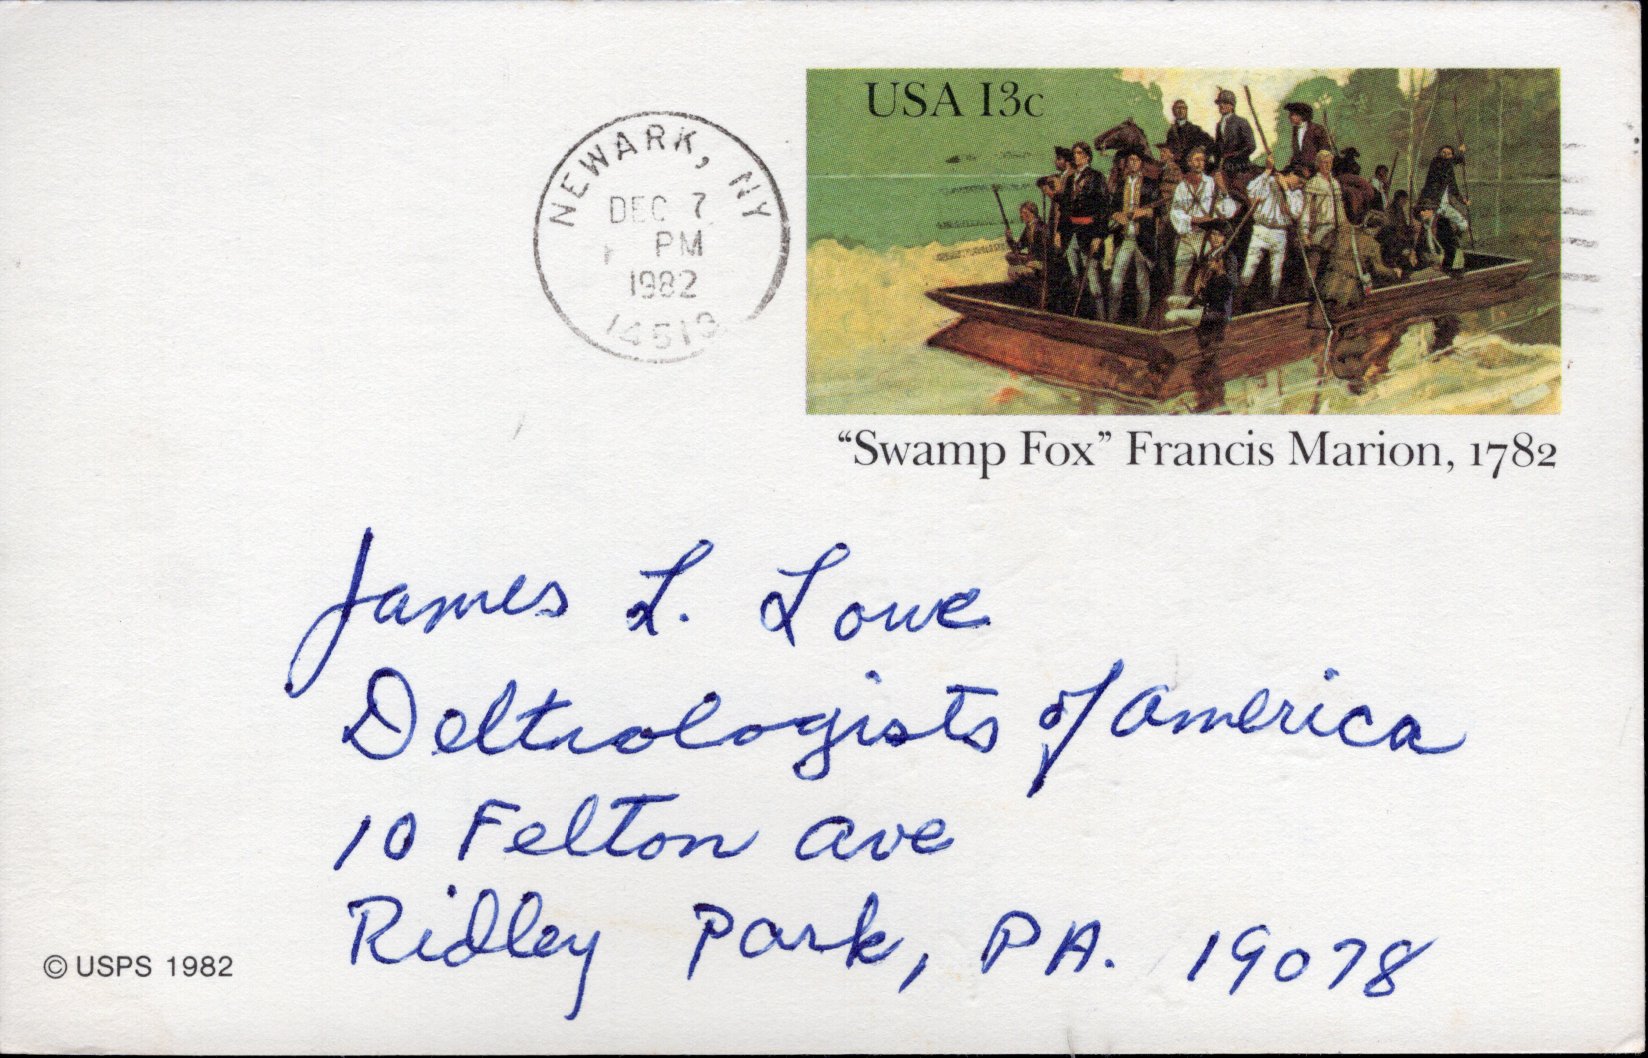 USA 13c
NEWARK, NY
DEC 7
PM
1982
14513
“Swamp Fox” Francis Marion, 1782
James L. Lowe
Deltiologists of America
10 Felton Ave
Ridley Park, PA. 19078
© USPS 1982